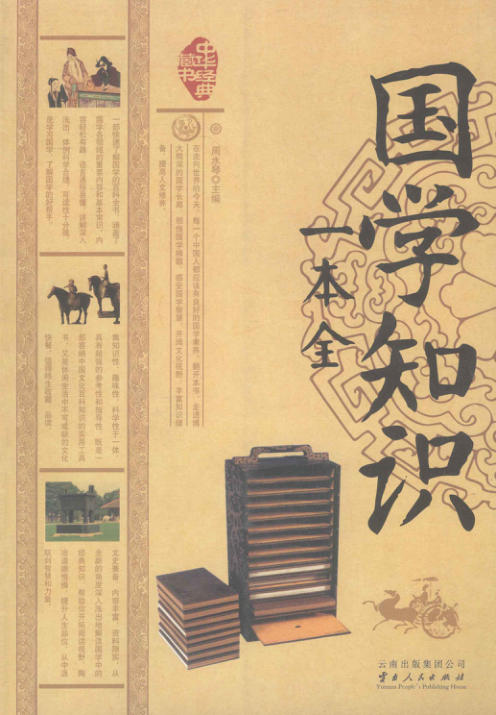 国学知识
一本全
中华经典
藏书
周水琴 ◎ 主编
在走向世界的今天，每一个中国人都应该有良好的国学素养。翻开本书，走进博
大精深的国学长廊，领悟国学精髓，感受国学智慧，开阔文化视野，丰富知识储
备，提高人文修养。
一部快速了解国学的百科全书，涵盖了
国学各领域的重要内容和基本常识，内
容轻松有趣，语言通俗易懂，讲解深入
浅出，体例科学合理，可读性十分强，
是学习国学、了解国学的好帮手。
集知识性、趣味性、科学性于一体，
具有超强的参考性和指导性，既是一
部容纳中国文化百科知识的实用工具
书，又是休闲生活中不可或缺的文化
快餐，值得终生收藏、品读。
文史兼备，内容丰富，资料翔实，从
全新的角度深入浅出地解读国学中的
经典知识，帮助您开拓阅读视野，陶
冶道德情操，提升人生品位，从中汲
取到智慧和力量。
云南出版集团公司
云南人民出版社
Yunnan People's Publishing House